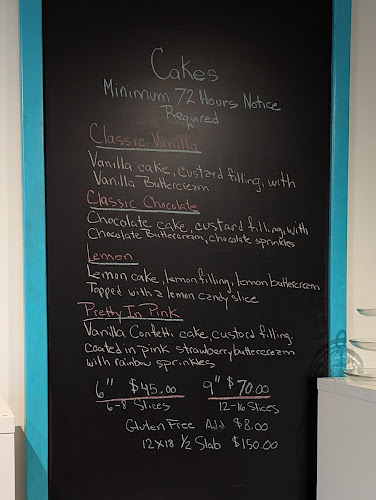 Cakes
Minimum 72 Hours Notice
Required
Classic Vanilla
Vanilla cake, custard filling, with
Vanilla Buttercream
Classic Chocolate
Chocolate cake, custard filling, with
Chocolate Buttercream, chocolate sprinkles
Lemon
Lemon cake, lemon filling, lemon buttercream
Topped with a lemon candy slice
Pretty In Pink
Vanilla Confetti cake, custard filling,
coated in pink strawberry buttercream
with rainbow sprinkles
6" $45.00 9" $70.00
6-8 Slices 12-16 Slices
Gluten Free Add $8.00
12x18 1/2 Slab $150.00